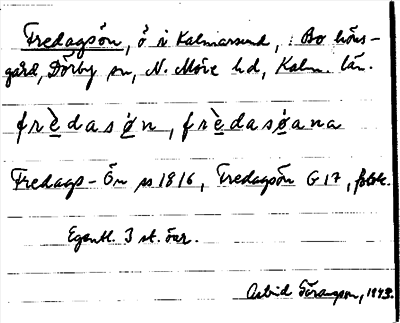 Fredagsön, ö i Kalmarsund, i Bo höns-
gärd, Dörby sn, N. Möre hd, Kalm. län.
frèdasøn, frèdasøana
Fredags-Ön ss 1816, Fredagsön G 17,
Egentl. 3 st. öar.
Astrid Göransson, 1943.